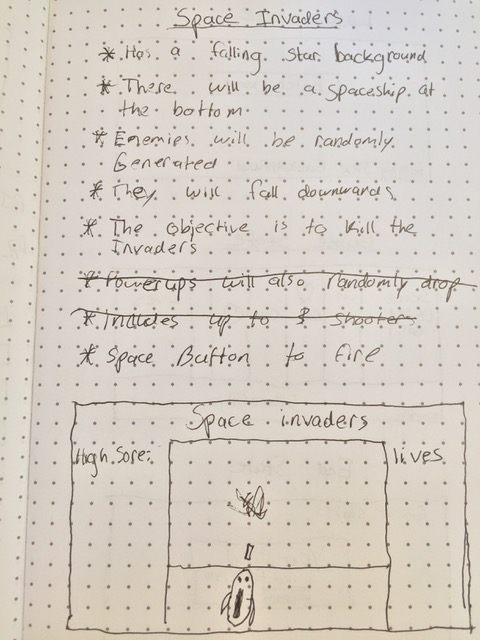 Space Invaders
* Has a falling star background
* There will be a spaceship at
the bottom
* Enemies will be randomly
Generated
* They will fall downwards
* The objective is to kill the
Invaders
* Powerups will also randomly drop
* Includes up to 3 shooters
* Space Button to fire
Space invaders
High Sore:
lives